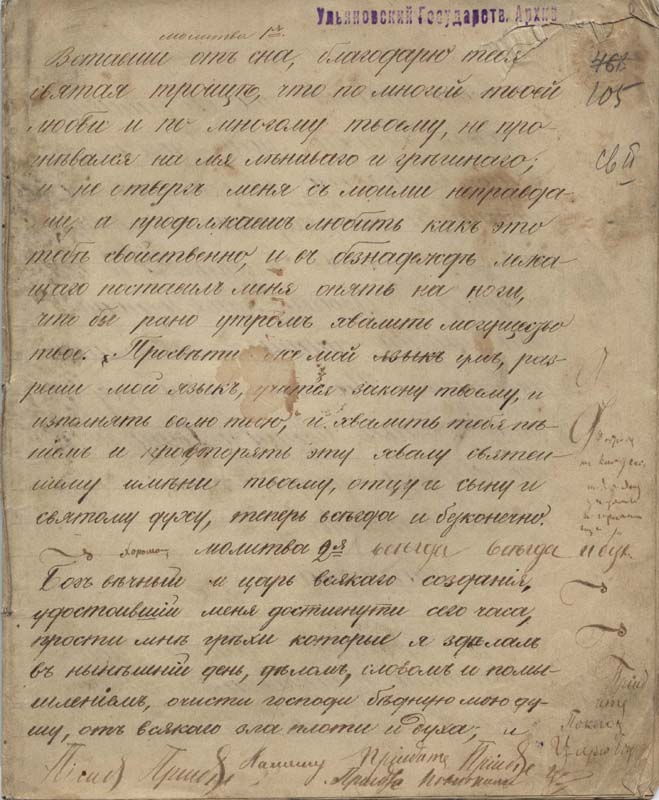 Ульяновский Государств. Архив
молитва 1я.
Вставши отъ сна, благодарю тебя
святая троице, что по многой твоей
461
любви и по многому твоему, не про-
105
гнѣвался на мя лѣниваго и грѣшнаго;
св
и не отвергъ меня съ моими неправда-
ми, а продолжаешь любить какъ это
тебѣ свойственно, и въ безнадеждѣ лежа
щаго поставилъ меня опять на ноги,
что бы рано утромъ хвалить могущество
твое. Просвѣти мой языкъ умъ, раз-
реши мой языкъ, учится закону твоему, и
исполнять волю твою, и хвалить тебя пѣ-
ніемъ и повторять эту хвалу святей-
шему имѣни твоему, отцу и сыну и
святому духу, теперь всегда и безконечно.
молитва 2я всегда всегда и без
Богъ вѣчный и царь всякаго созданія,
удостоившій меня достигнути сего часа,
прости мнѣ грѣхи которые я зделалъ
въ нынѣшній день, дѣломъ, словомъ и помы-
шленіемъ, очисти господи бѣдную мою ду-
шу, отъ всякаго зла плоти и духа; и